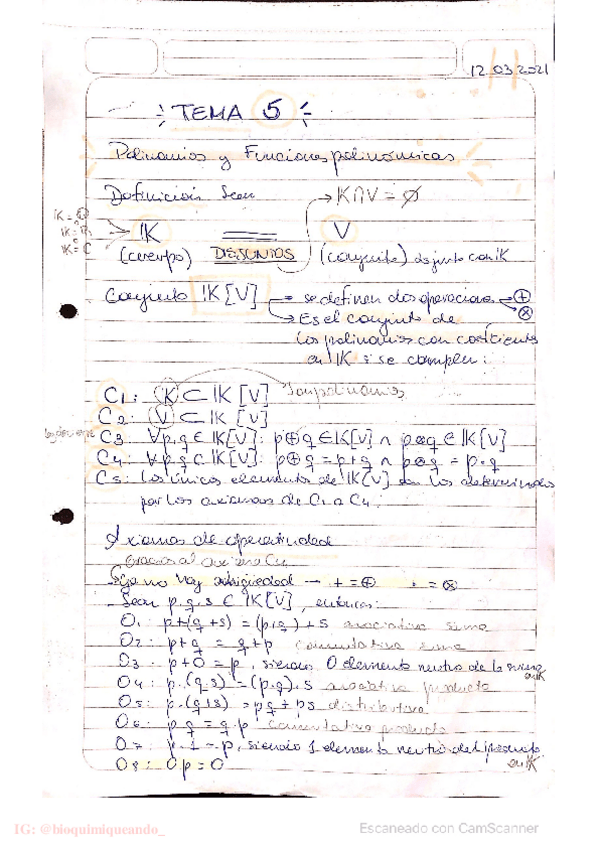 12.03.2021
TEMA 5
Polinomios y Funciones polinómicas
Definición Sean
→ K∩V = ∅
IK = Q
IK = R
IK = C
IK DISJUNTOS V
(cuerpo) (conjunto) disjunto con IK
Conjunto IK[V] → se definen dos operaciones → ⊕
⊗
→ Es el conjunto de
los polinomios con coeficientes
en IK si se cumplen:
C1: K ⊂ IK[V] son polinomios
C2: V ⊂ IK[V]
C3 ∀p,q ∈ IK[V]: p⊕q ∈ IK[V] ∧ p⊗q ∈ IK[V]
C4: ∀p,q ⊂ IK[V]: p⊕q = p+q ∧ p⊗q = p·q
C5: Los únicos elementos de IK[V] son los determinados
por los axiomas de C1 a C4.
Axiomas de operatividad
Gracias al axioma C4
no hay ambigüedad → + = ⊕ · = ⊗
Sean p,q,s ∈ IK[V], entonces:
O1: p+(q+s) = (p+q)+s asociativa suma
O2: p+q = q+p conmutativa suma
O3: p+0 = p, siendo 0 elemento neutro de la suma
en IK
O4: p·(q·s) = (p·q)·s asociativa producto
O5: p·(q+s) = pq + ps distributiva
O6: p·q = q·p conmutativa producto
O7: p·1 = p, siendo 1 elemento neutro del producto
en IK
O8: 0p = 0
IG: @bioquimiqueando_
Escaneado con CamScanner